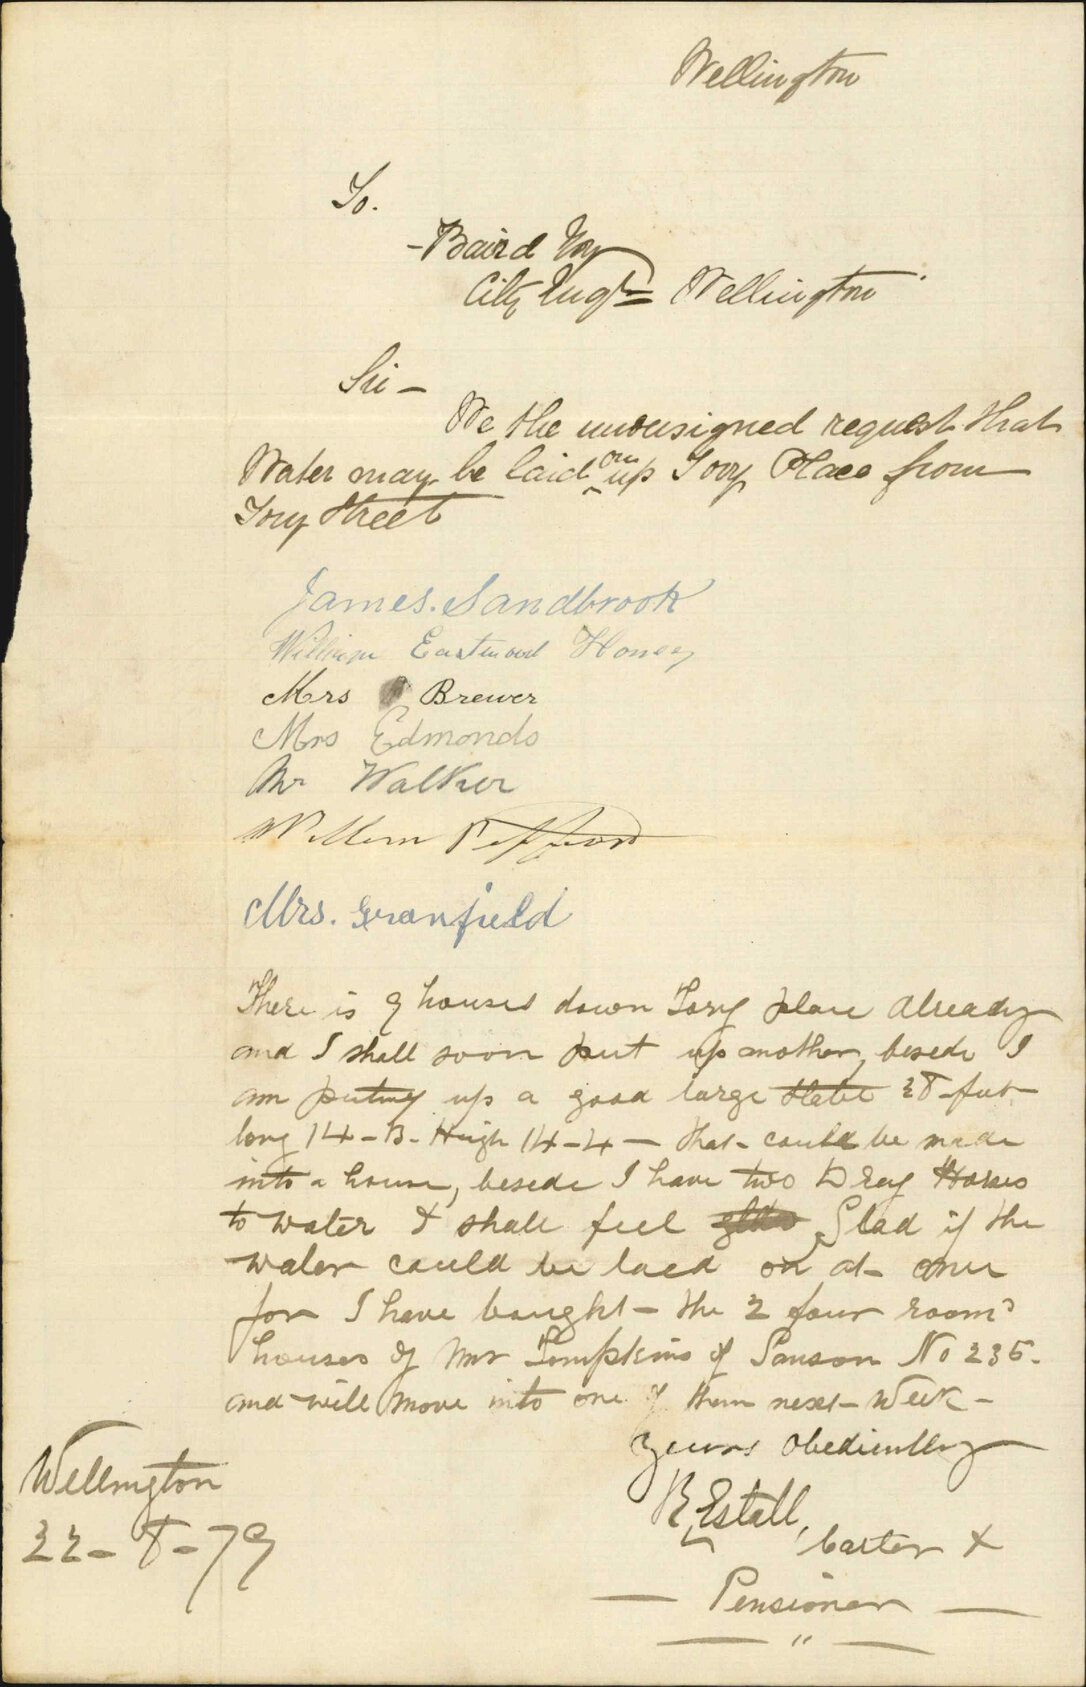 Wellington
To.
- Baird Esq
City Engr Wellington
Sir -
We the undersigned request that
Water may be laid on up Tory Place from
Tory Street
James. Sandbrook
William Eastwood Honey
Mrs Brewer
Mrs Edmonds
Mr Walker
Willem
Mrs. Granfield
There is 9 houses down Tory place Already
and I shall soon put up another, beside I
am puting up a good large stable 28 feet
long 14 - B - High 14 - 4 - that could be made
into a house, beside I have two Dray Horses
to water I shall feel Glad if the
water could be laed on at once
for I have bought - the 2 four room
houses of Mr Tompkins of Sanson No 235.
and will move into one of them next - Week -
Yours Obediently
R Estall,
Carter &
- Pensioner -
"
Wellington
22 - 8 - 79